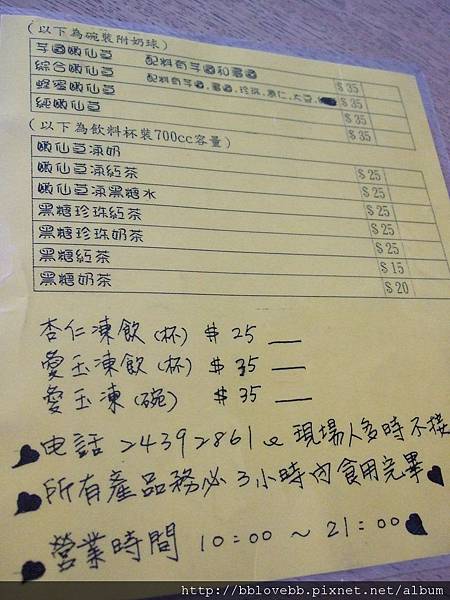 (以下為碗裝附奶球)
芋圓嫩仙草 配料有芋圓和蕃圓 $35
綜合嫩仙草 配料有芋圓,蕃圓,珍珠,薏仁,大豆, $35
蜂蜜嫩仙草 $35
純嫩仙草 $35
(以下為飲料杯裝700cc容量)
嫩仙草凍奶 $25
嫩仙草凍紅茶 $25
嫩仙草凍黑糖水 $25
黑糖珍珠紅茶 $25
黑糖珍珠奶茶 $25
黑糖紅茶 $15
黑糖奶茶 $20
杏仁凍飲(杯) $25
愛玉凍飲(杯) $35
愛玉凍(碗) $35
电話 24392861 現場人多時不接
所有產品務必3小時內食用完畢
營業時間 10:00~21:00
http://bblovebb.pixnet.net/album